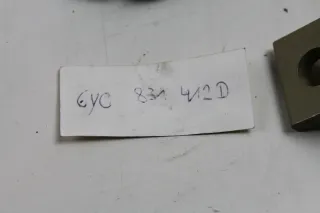 6YC 831 412D